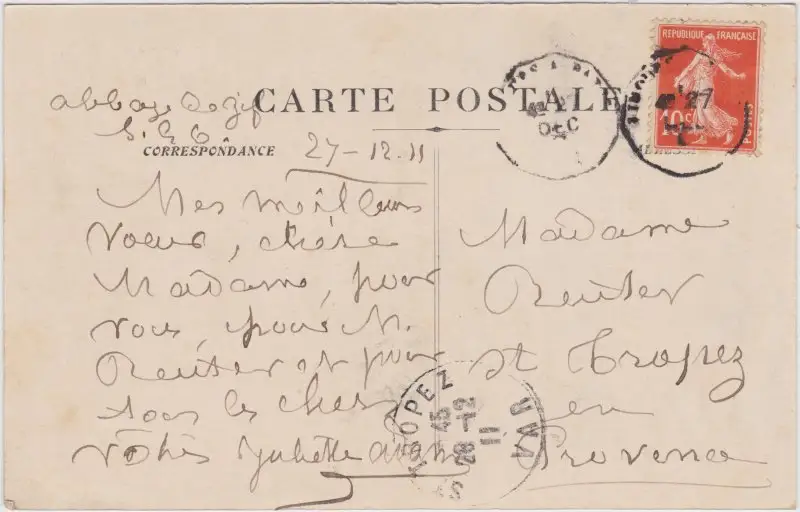 CARTE POSTALE
abbaye de gif
S. & O.
CORRESPONDANCE
27-12.11
Mes meilleurs
voeux, chère
Madame, pour
vous, pour M.
Reuter et pour
tous les chers
vôtres Juliette adam
Madame
Reuter
St Tropez
en
Provence
REPUBLIQUE FRANÇAISE
10 c
POSTES
27
DEC
27
ST TROPEZ
VAR
45
28-12
11